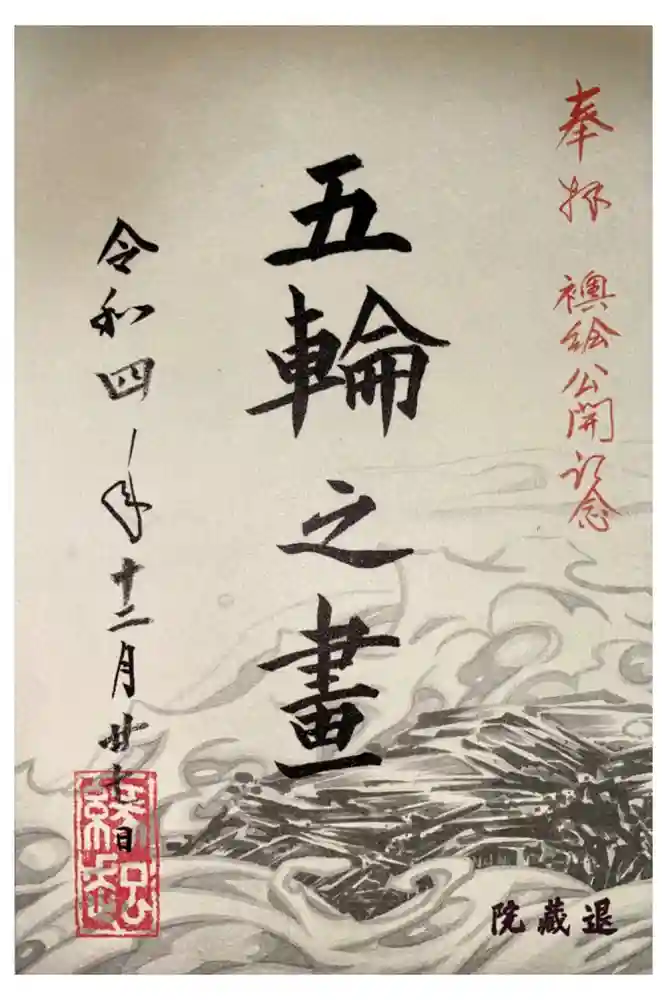 奉拝 襖絵公開記念
五輪之畫
令和四年十二月廿七日
退藏院